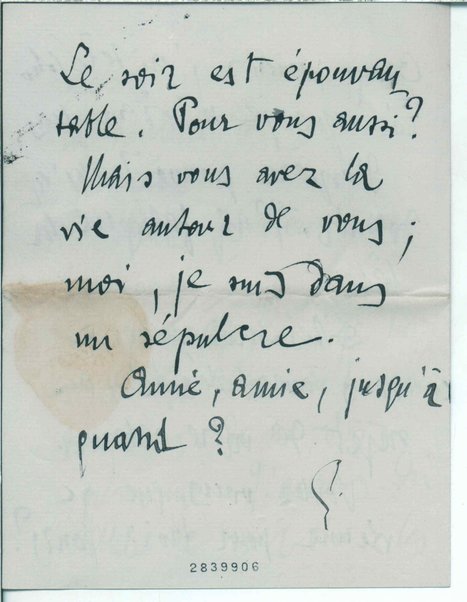 Le soir est épouvan
table. Pour vous aussi?
Mais vous avez la
vie autour de vous;
moi, je suis dans
un sépulcre.
Amie, amie, jusqu'à
quand?
2839906